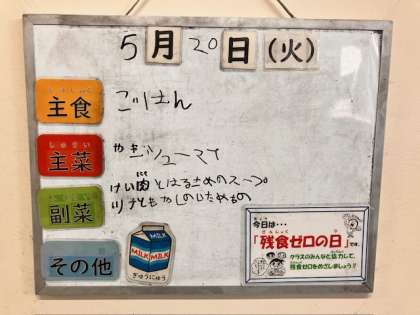 5月20日(火)
しゅしょく
主食
ごはん
しゅさい
主菜
やきシューマイ
けい肉とはるさめのスープ
ツナともやしのいためもの
副菜
その他
MILK MILK
ぎゅうにゅう
今日は…
「残食ゼロの日」です。
クラスのみんなと協力して、
残食ゼロをめざしましょう!!